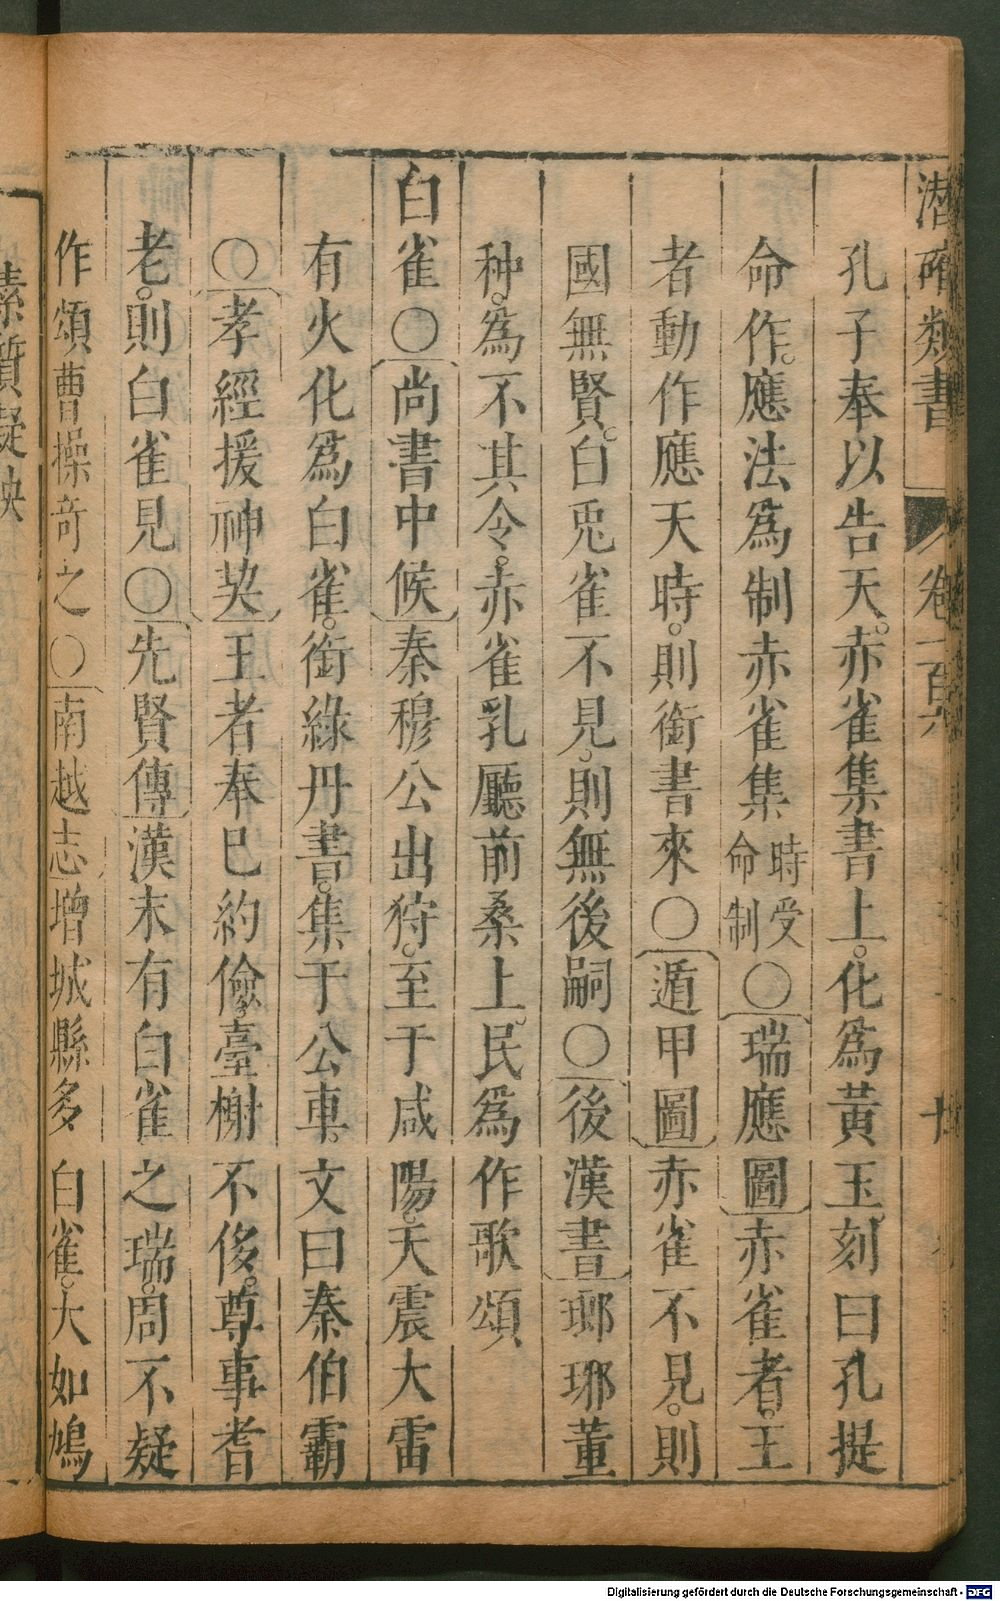 潛確類書 卷一百 十
孔子奉以告天。赤雀集書上。化為黃玉。刻曰孔提
命作。應法為制赤雀集時受命制〇瑞應圖赤雀者。王
者動作應天時。則銜書來〇遁甲圖赤雀不見。則
國無賢。白兎雀不見。則無後嗣〇後漢書瑯琊董
种。為不其令。赤雀乳廳前桑上。民為作歌頌
白雀〇尚書中候秦穆公出狩。至于咸陽。天震大雷
有火化為白雀。銜綠丹書。集于公車。文曰秦伯霸
〇孝經援神契王者奉巳約儉。臺榭不侈。尊事耆
老。則白雀見〇先賢傳漢末有白雀之瑞。周不疑
作頌曹操奇之〇南越志增城縣多白雀。大如鳩
素質凝
Digitalisierung gefördert durch die Deutsche Forschungsgemeinschaft - DFG